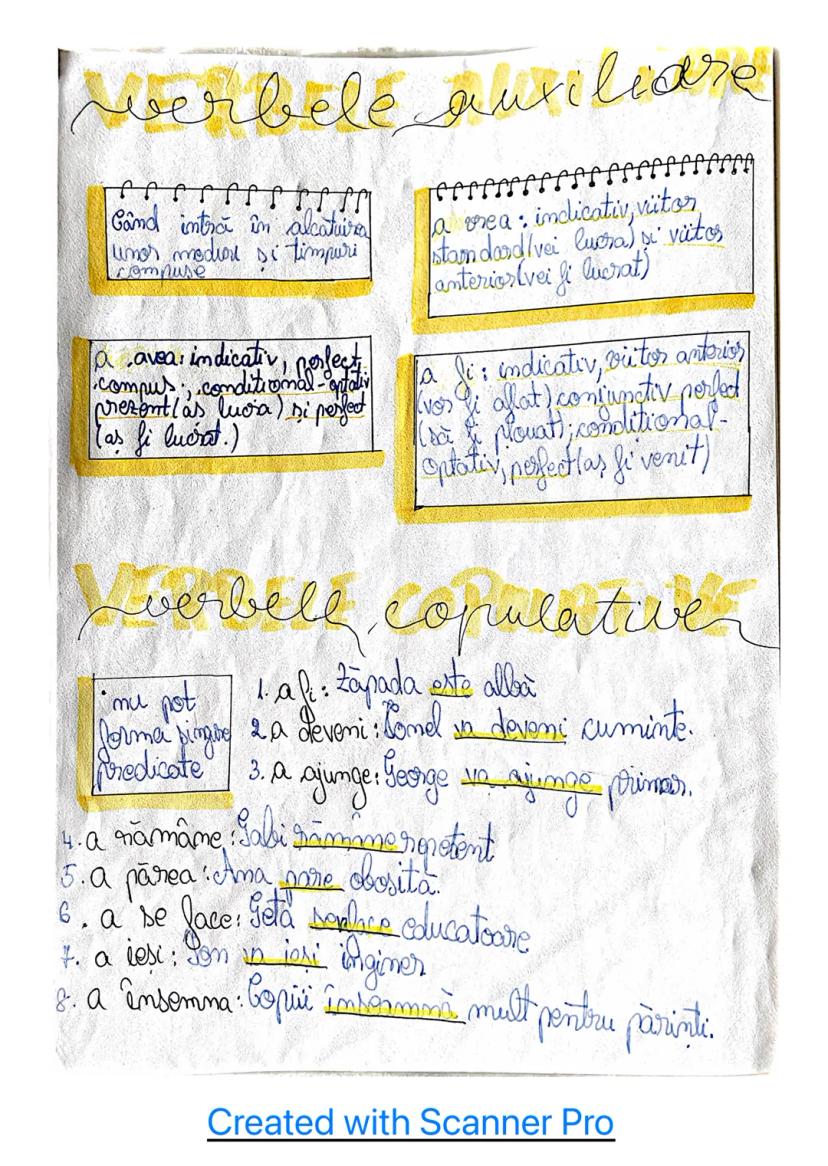 verbele auxiliare
VERBELE AUXILIARE
Când intră în alcatuirea
unor moduri și timpuri
compuse
a vrea: indicativ, viitor
standard(vei lucra) și viitor
anterior(vei fi lucrat)
a avea: indicativ, perfect
compus; conditional-optativ
prezent(aș lucra) și perfect
(aș fi lucrat.)
a fi: indicativ, viitor anterior
(vor fi aflat) conjunctiv perfect
(să fi plouat); conditional-
optativ, perfect(aș fi venit)
verbele copulative
VERBELE COPULATIVE
nu pot
forma singure
predicate
1. a fi: Zăpada este albă
2 a deveni: Ionel va deveni cuminte.
3. a ajunge: George va ajunge primar.
4. a rămâne: Gabi rămâne repetent
5. a părea: Ana pare obosită.
6. a se face: Geta se face educatoare
7. a ieși: Ion va ieși inginer
8. a însemna: Copiii înseamnă mult pentru părinți.
Created with Scanner Pro